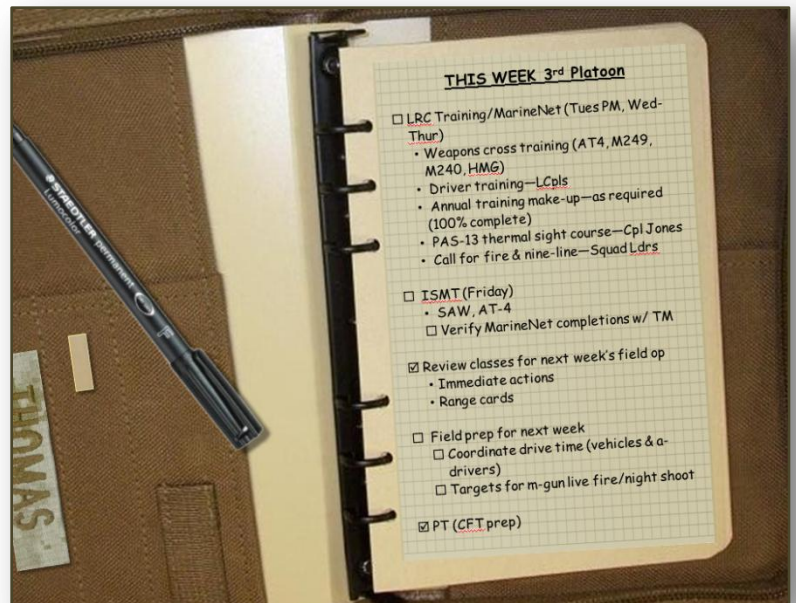 THIS WEEK 3rd Platoon
☐ LRC Training/MarineNet (Tues PM, Wed-
Thur)
• Weapons cross training (AT4, M249,
M240, HMG)
• Driver training—LCpls
• Annual training make-up—as required
(100% complete)
• PAS-13 thermal sight course—Cpl Jones
• Call for fire & nine-line—Squad Ldrs
☐ ISMT (Friday)
• SAW, AT-4
☐ Verify MarineNet completions w/ TM
☑ Review classes for next week's field op
• Immediate actions
• Range cards
☐ Field prep for next week
☐ Coordinate drive time (vehicles & a-
drivers)
☐ Targets for m-gun live fire/night shoot
☑ PT (CFT prep)
STAEDTLER permanent
Lumocolor
F
THOMAS